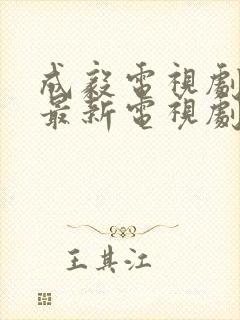 成毅電視劇
最新電視劇
王其江